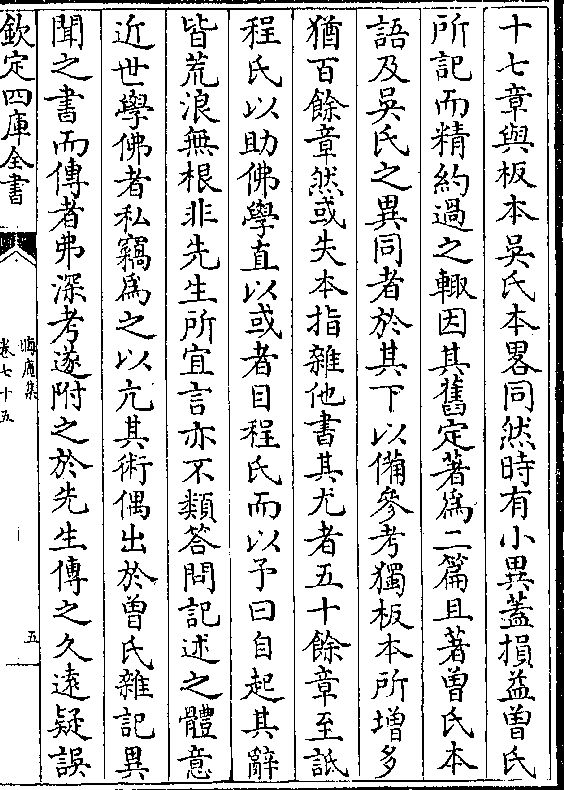 十七章與板本吳氏本畧同然時有小異蓋損益曾氏
所記而精約過之輙因其舊定著為二篇且著曾氏本
語及吳氏之異同者於其下以備參考獨板本所增多
猶百餘章然或失本指雜他書其尤者五十餘章至詆
程氏以助佛學直以或者目程氏而以予曰自起其辭
皆荒浪無根非先生所宜言亦不類答問記述之體意
近世學佛者私竊為之以亢其術偶出於曾氏雜記異
聞之書而傳者弗深考遂附之於先生傳之久遠疑誤
欽定四庫全書
晦庵集
卷七十五
五